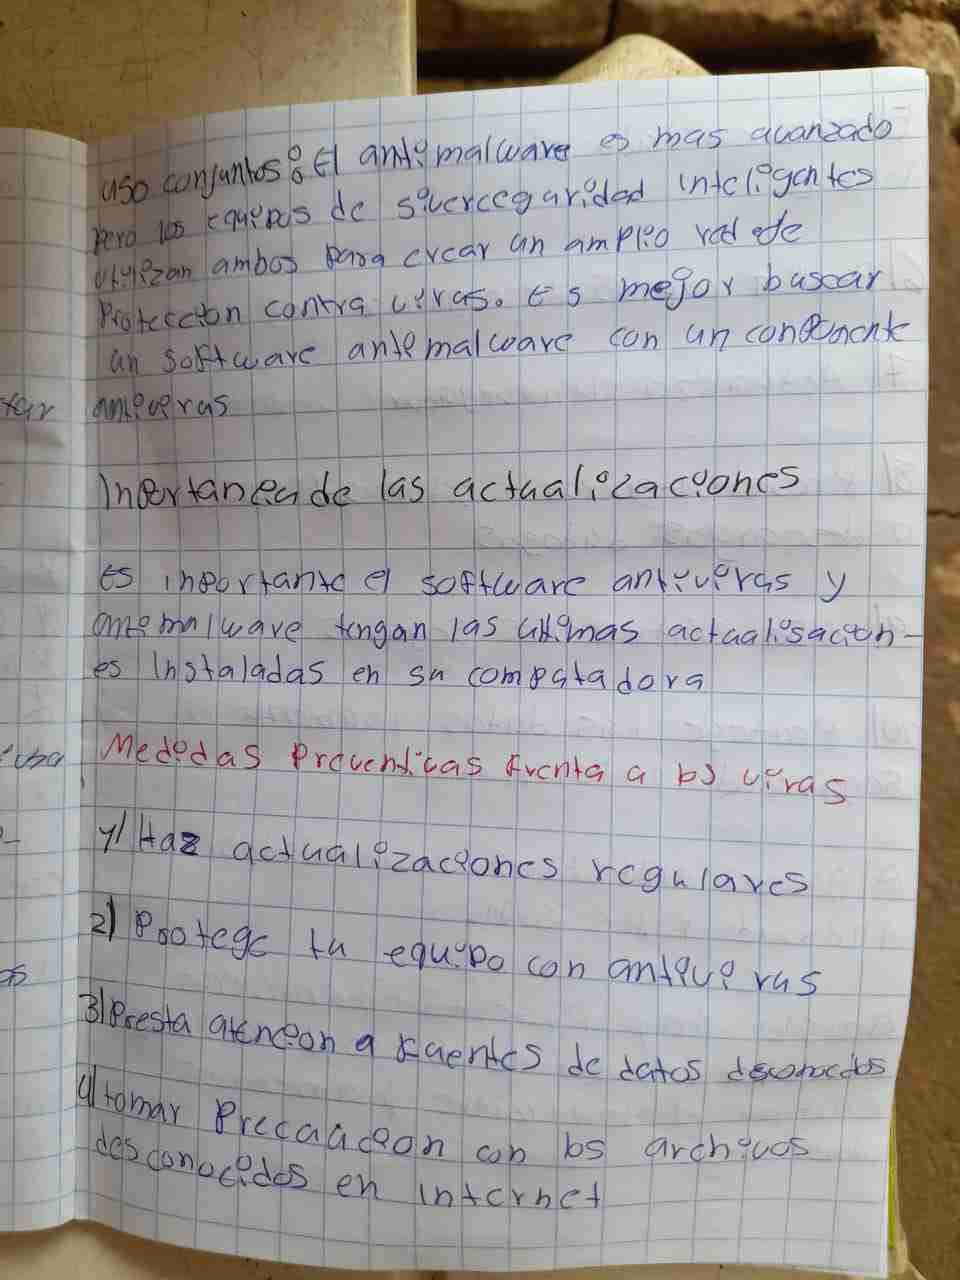 uso conjuntos: El antimalware es mas avanzado
pero los equipos de siverceguridad inteligentes
utilizan ambos para crear un amplio red de
proteccion contra virus. Es mejor buscar
un software antimalware con un conponente
antivirus
Inportancia de las actualizaciones
Es inportante el software antivirus y
antimalware tengan las ultimas actualisacion-
es instaladas en su computadora
Medidas preventivas frenta a los virus
1) Haz actualizaciones regulares
2) Protege tu equipo con antivirus
3) Presta atencion a fuentes de datos desconocidos
4) tomar precaucion con los archivos
desconocidos en internet